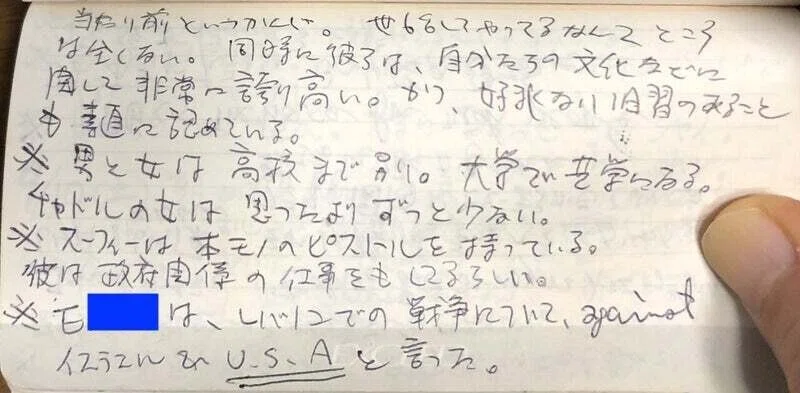 当たり前というかんじ。世話してやってるなんて ところ
は全くない。同時に彼らは、自分たちの文化などに
関して非常に誇り高い。かつ、好ましくない習慣のあること
も素直に認めている。
※ 男と女は高校まで別。大学で共学になる。
チャドルの女は思ったよりずっと少ない。
※ スーフィーは本モノのピストルを持っている。
彼は政府関係の仕事をもしてるらしい。
※ モ は、レバノンでの戦争について、against
イスラエル & U.S.A と言った。